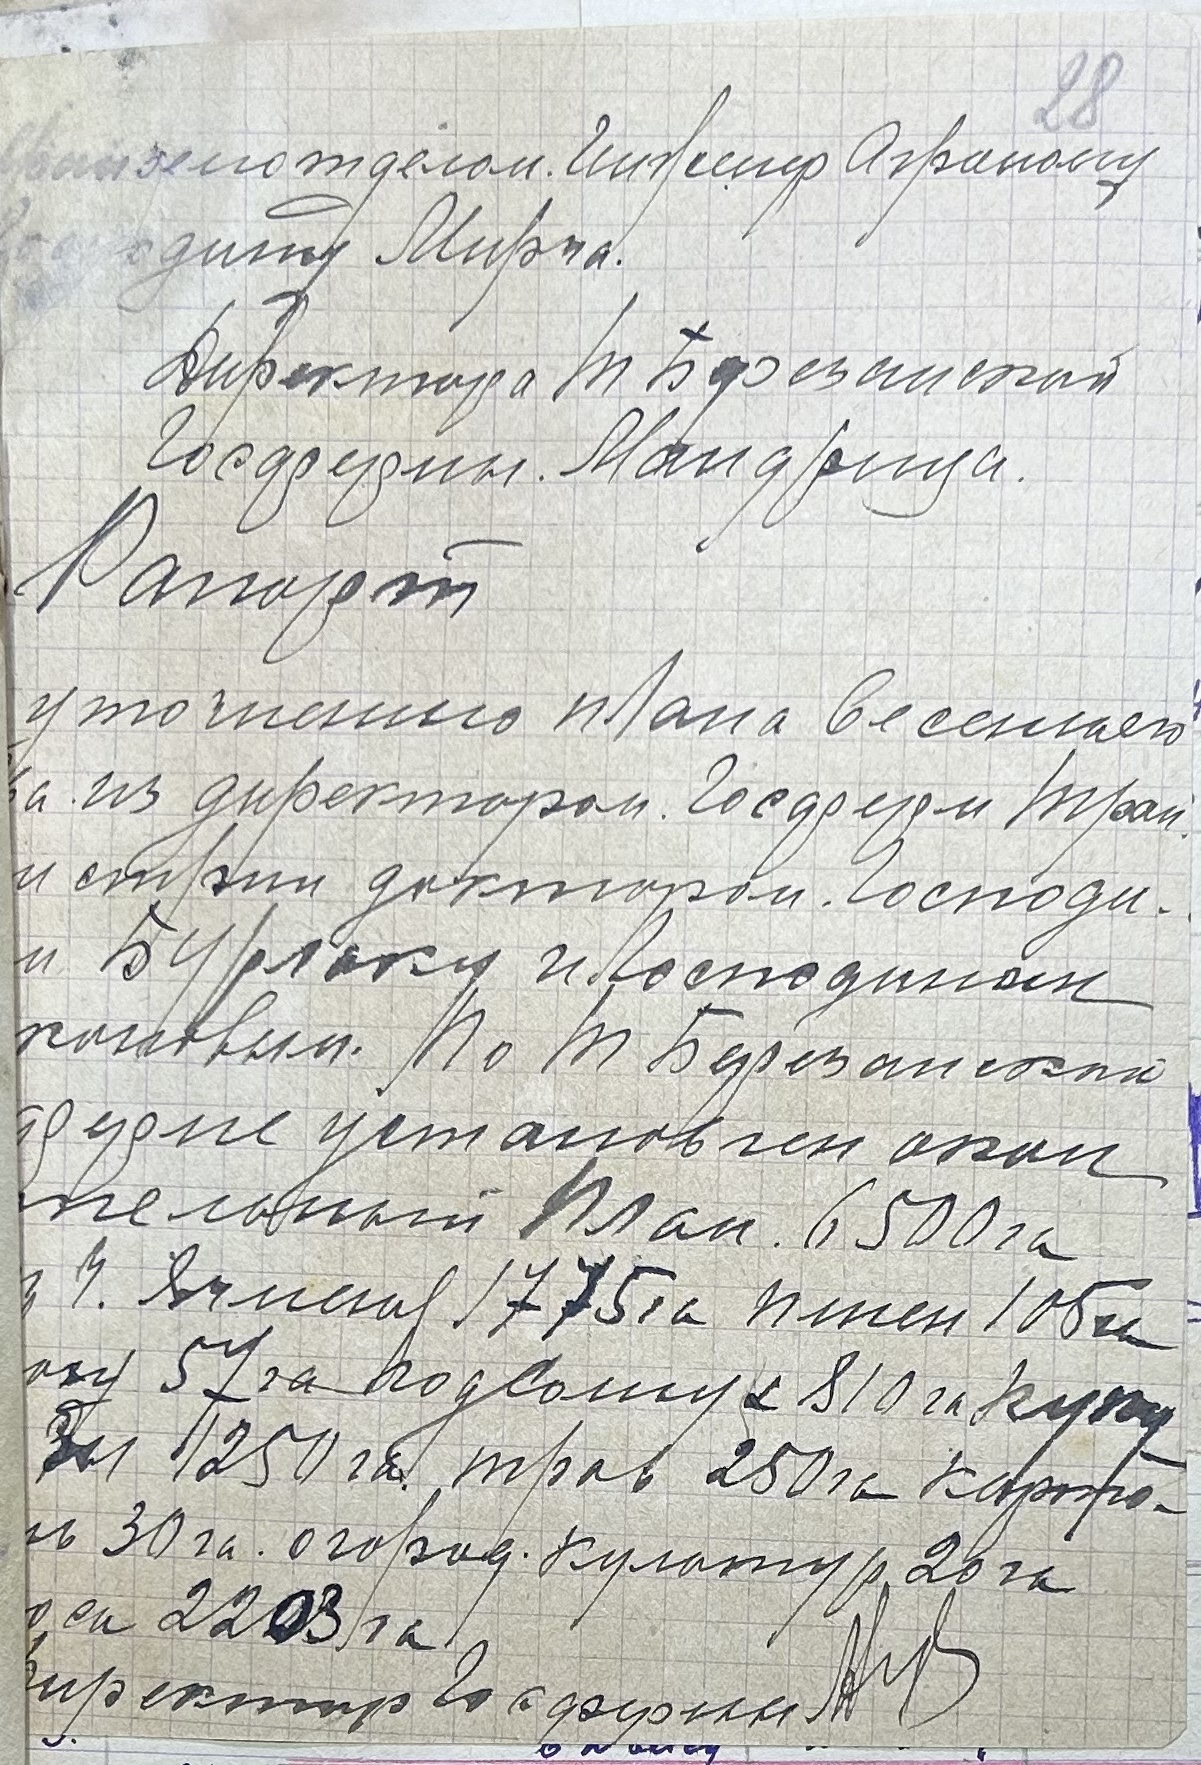 28
земотделом. Инженер Агроному
Господину Мирча.
Директора Т Березанской
Госдфермы. Мандрица.
Рапорт
уточнению плана весеннего
ва. из директором. Госдферм Тран
и стрии доктором. Господи-
м Бурлаку и Господином
кановым. По Т Березанской
дферме установлен окон
тельный план. 6500 га
з ч. Ячменов 1775 га пшен 105 га
оку 57 га подсолнух 810 га куку
зы 1250 га. трав 250 га картофе-
ль 30 га. огород. культур 20 га
оса 2203 га
Директор Госдфермы